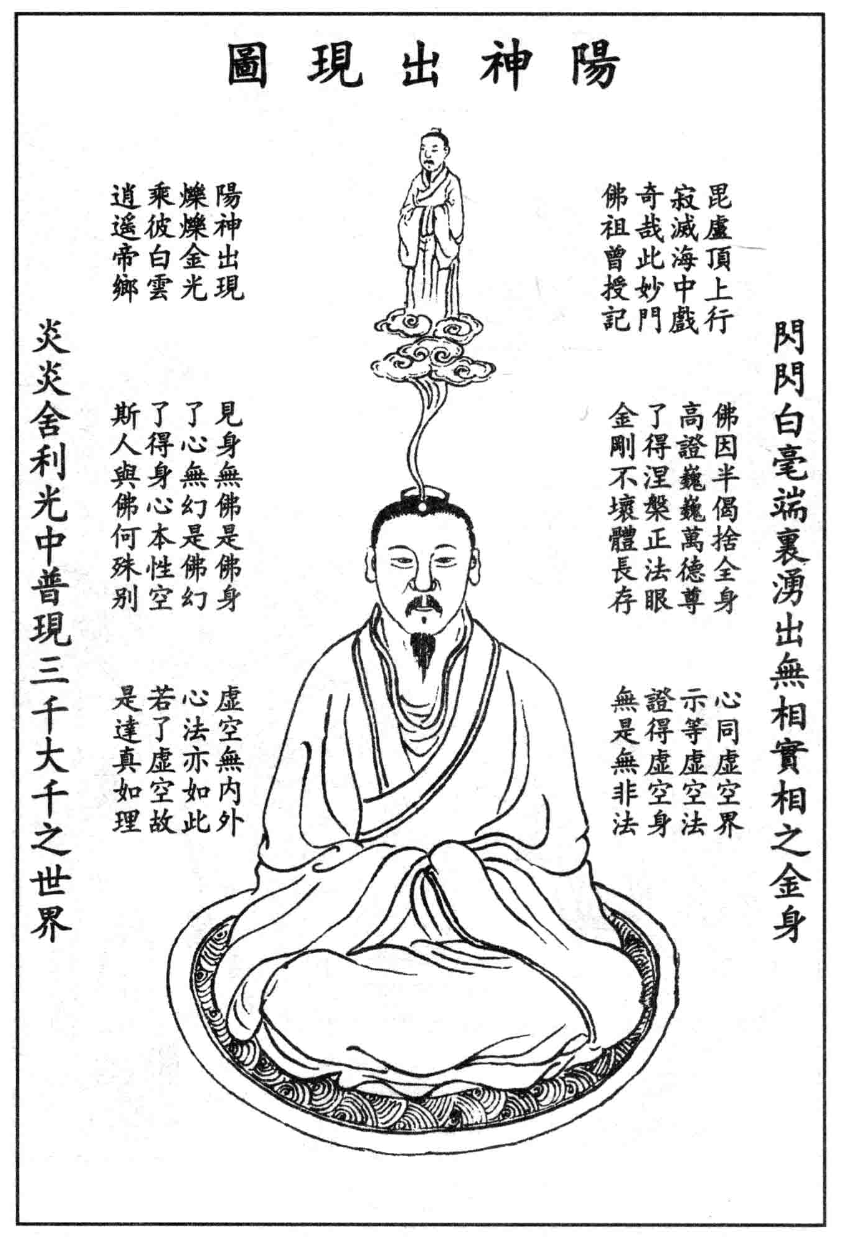 陽神出現圖
閃閃白毫端裏湧出無相實相之金身
毘盧頂上行
寂滅海中戲
奇哉此妙門
佛祖曾授記
佛因半偈捨全身
高證巍巍萬德尊
了得涅槃正法眼
金剛不壞體長存
心同虛空界
示等虛空法
證得虛空身
無是無非法
陽神出現
爍爍金光
乘彼白雲
逍遥帝鄉
見身無佛是佛身
了心無幻是佛幻
了得身心本性空
斯人與佛何殊别
虛空無内外
心法亦如此
若了虛空故
是達真如理
炎炎舍利光中普現三千大千之世界